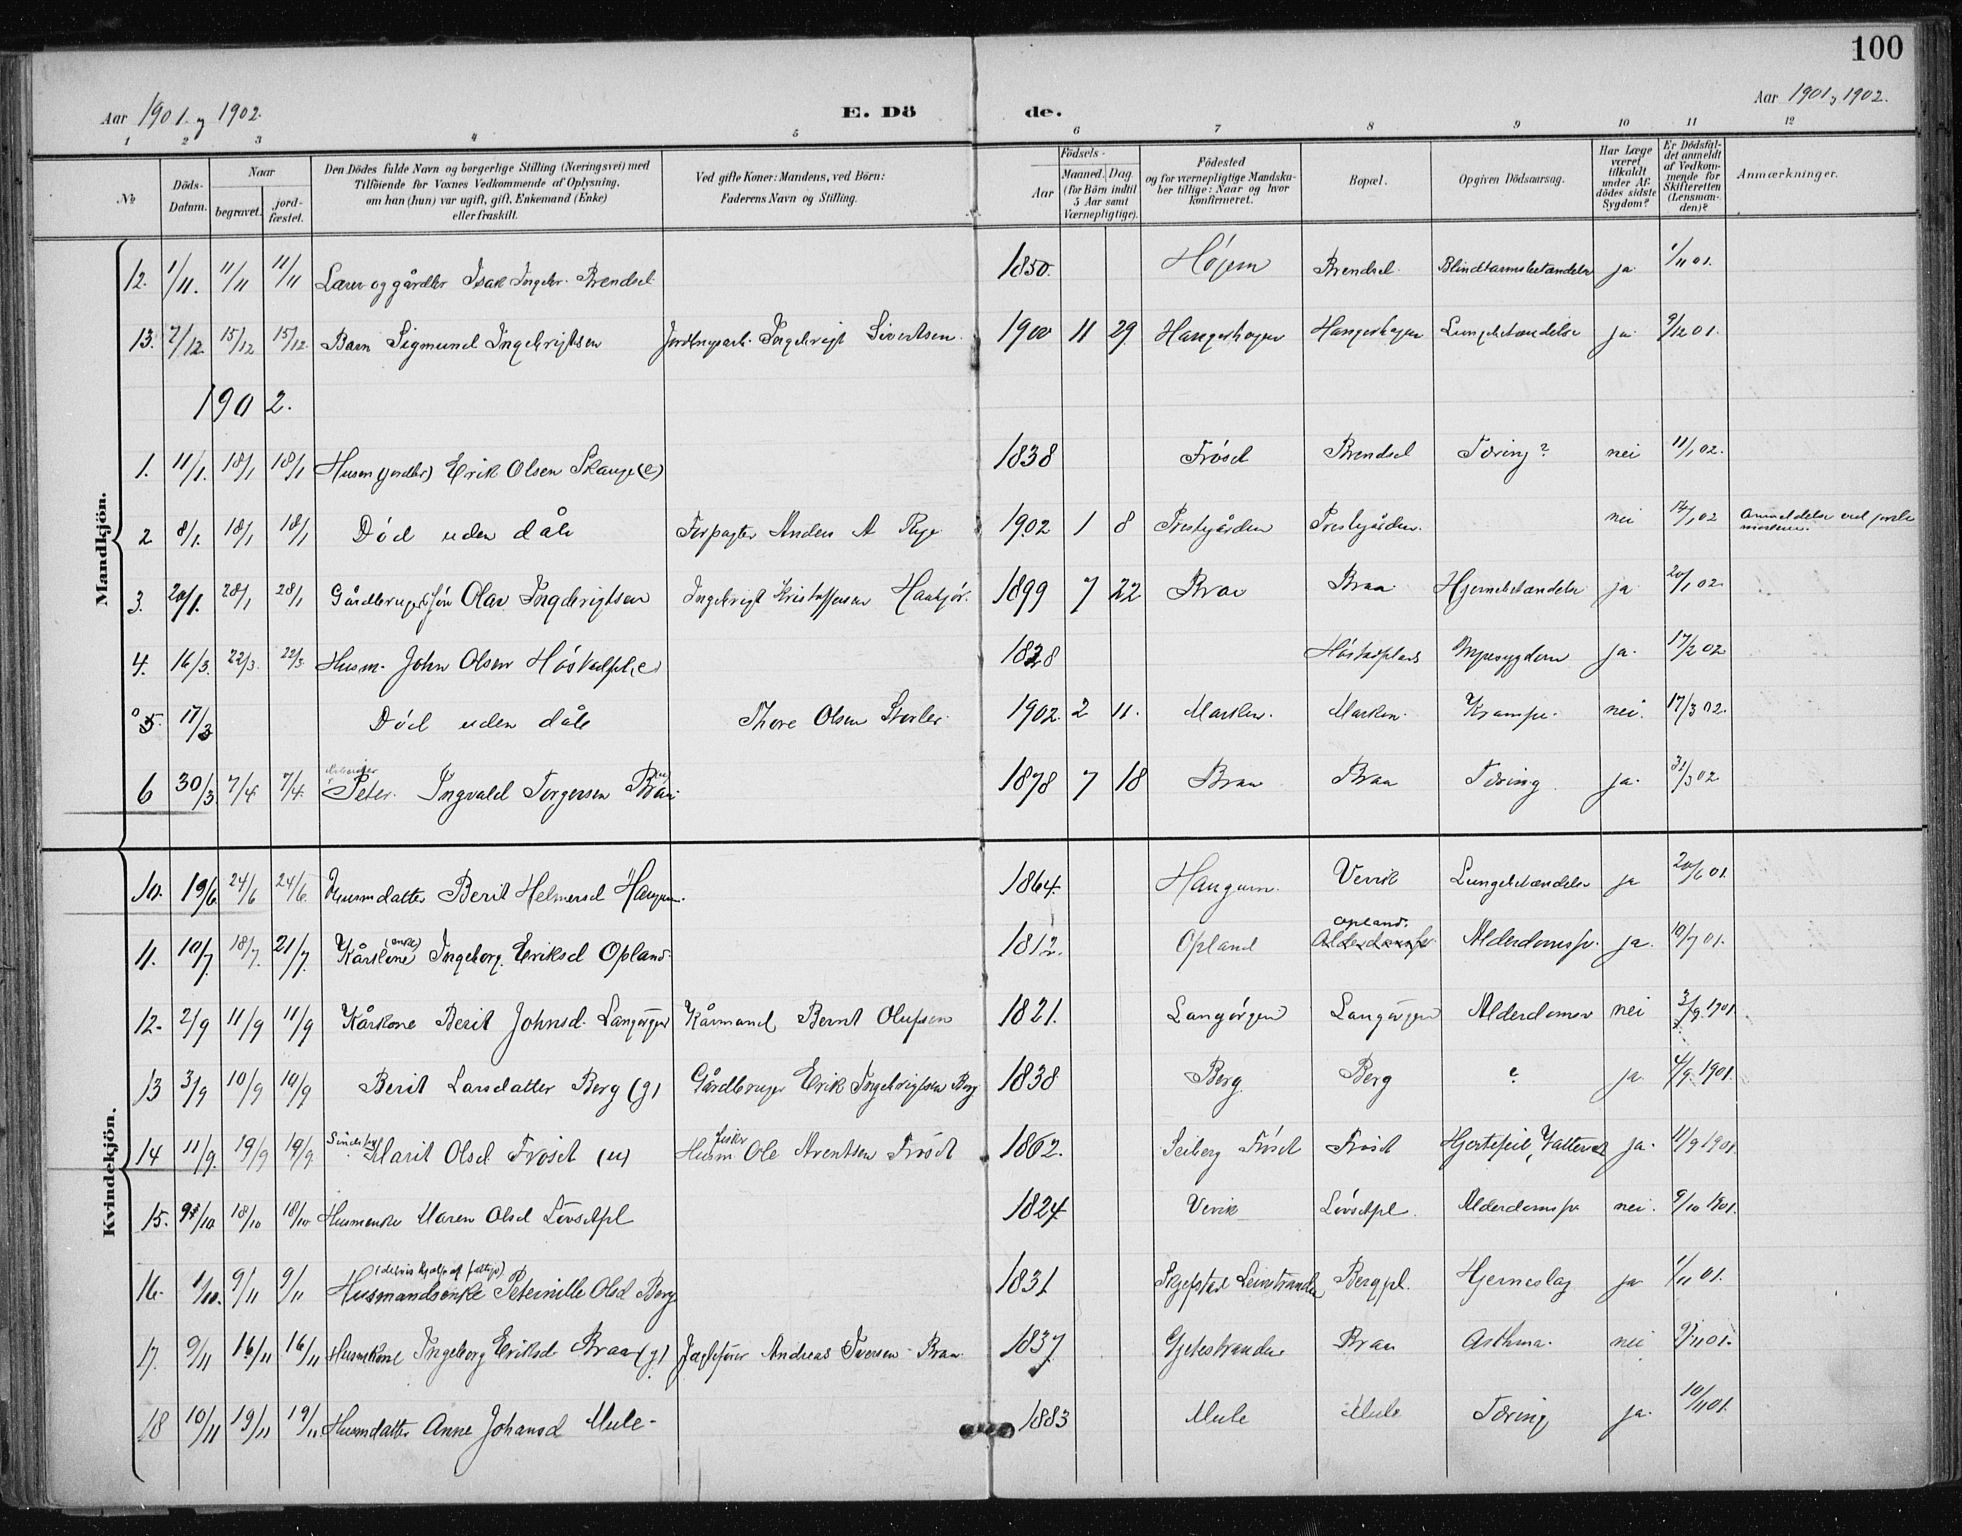 100
Aar 1901 og 1902.
E. Dö de.
Aar 1901 og 1902.
1 2 3 4 5 6 7 8 9 10 11 12
No
Döds-Datum.
Naar
begravet.
jord-fæstet.
Den Dödes fulde Navn og borgerlige Stilling (Næringsvei) med
Tilföiende for Voxnes Vedkommende af Oplysning,
om han (hun) var ugift, gift, Enkemand (Enke)
eller fraskilt.
Ved gifte Koner: Mandens, ved Börn:
Faderens Navn og Stilling.
Födsels-
Aar
Maaned. Dag.
(for Börn indtil
5 Aar samt
Værnepligtige).
Födested
og for værnepligtige Mandska-
ber tillige: Naar og hvor
konfirmeret.
Bopæl.
Opgiven Dödsaarsag.
Har Læge
været
tilkaldt
under Af-
dödes sidste
Sygdom?
Er Dödsfal-
det anmeldt
af Vedkom-
mende for
Skifteretten
(Lensman-
den)?
Anmærkninger.
Mandkjön.
12. 1/11. 11/11 11/11 Lærer og gårdbr Isak Ingebr. Brendsel 1850. Højem Brendsel Blindtarmsbetændelse ja 1/11 01.
13. 7/12. 15/12 15/12. Barn Sigmund Ingebrigtsen Ingebrigt Sivertsen. 1900 11 29 Hangerhagen Hangerhagen Lungebetændelse ja 9/12 01.
1902.
1. 11/1. 18/1 18/1 Husm (jordbr) Erik Olsen Skauge (e) 1838 Frøset Brendsel Tæring? nei 11/1 02.
2 8/1. 18/1 18/1 Død uden dåb Forpagter Anders A Rye 1902 1 8 Prestegården Prestegården. nei 12/1 02 Anmeldelse ved jorde
moderen.
3. 20/1. 28/1 28/1 Gårdbrugersøn Olav Ingebrigtsen Ingebrigt Kristoffersen 1899 7 22 Braa Braa Hjernebetændelse ja 20/1 02.
4. 16/3. 22/3. 22/3. Husm. John Olsen Høstadpl. (e) 1828 Høstadplads Nyresygdom ja. 17/2 02
5. 17/3 Død uden dåb Thore Olsen 1902. 2 11. Marken. Marken. Krampe. nei. 17/3 02.
6 30/3 7/4 7/4. Peter Ingvald Torgersen Braa 1878 7 18 Braa Braa Tæring. ja. 31/3 02
Kvindekjön.
10. 19/6 24/6 24/6. Husmdatter Berit Helmersd Haugum. 1864. Haugum. Vevik Lungebetændelse ja 20/6 01.
11. 10/7. 18/7. 21/7. Kårkone (enke) Ingeborg Eriksd Opland. 1812. Opland Opland. Alderdomssv. ja. 10/7 01.
12. 2/9 11/9 11/9 Kårkone Berit Johnsd. Langørgen Kårmand Bernt Olufsen 1821. Langørgen Langørgen Alderdomsv nei 3/9. 1901.
13 3/9 10/9 10/9 Berit Larsdatter Berg (g) Gårdbruger Erik Ingebrigtsen Berg 1838 Berg. Berg ? ja 4/9. 1901.
14 11/9. 19/9 19/9. Marit Olsd Frøset (u) Husm fisker Ole Arentsen Frøset 1862. Frøset Frøset Hjertefeil, Vattersot ja. 11/9 1901.
15. 9/10 18/10 18/10 Husmenke Maren Olsd Løvsetpl 1824 Vevik Løvsetpl. Alderdomssv nei. 9/10 1901.
16. 1/10. 9/11 9/11 Husmandsenke Peternille Olsd Berg. (delvis hjælp af fattigv) 1831 Skjefstad Leinstranden Bergpl. Hjerneslag ja 1/11 01.
17. 9/11 16/11 16/11 Husmkone Ingeborg Eriksd Braa (g) Jægtefører Andreas Iversen Braa 1837 Gjetestranden Braa Asthma. nei 9/11 01.
18 10/11 19/11 19/11 Husmdatter Anne Johansd Mule 1883 Mule Mule Tæring ja. 10/11 01.